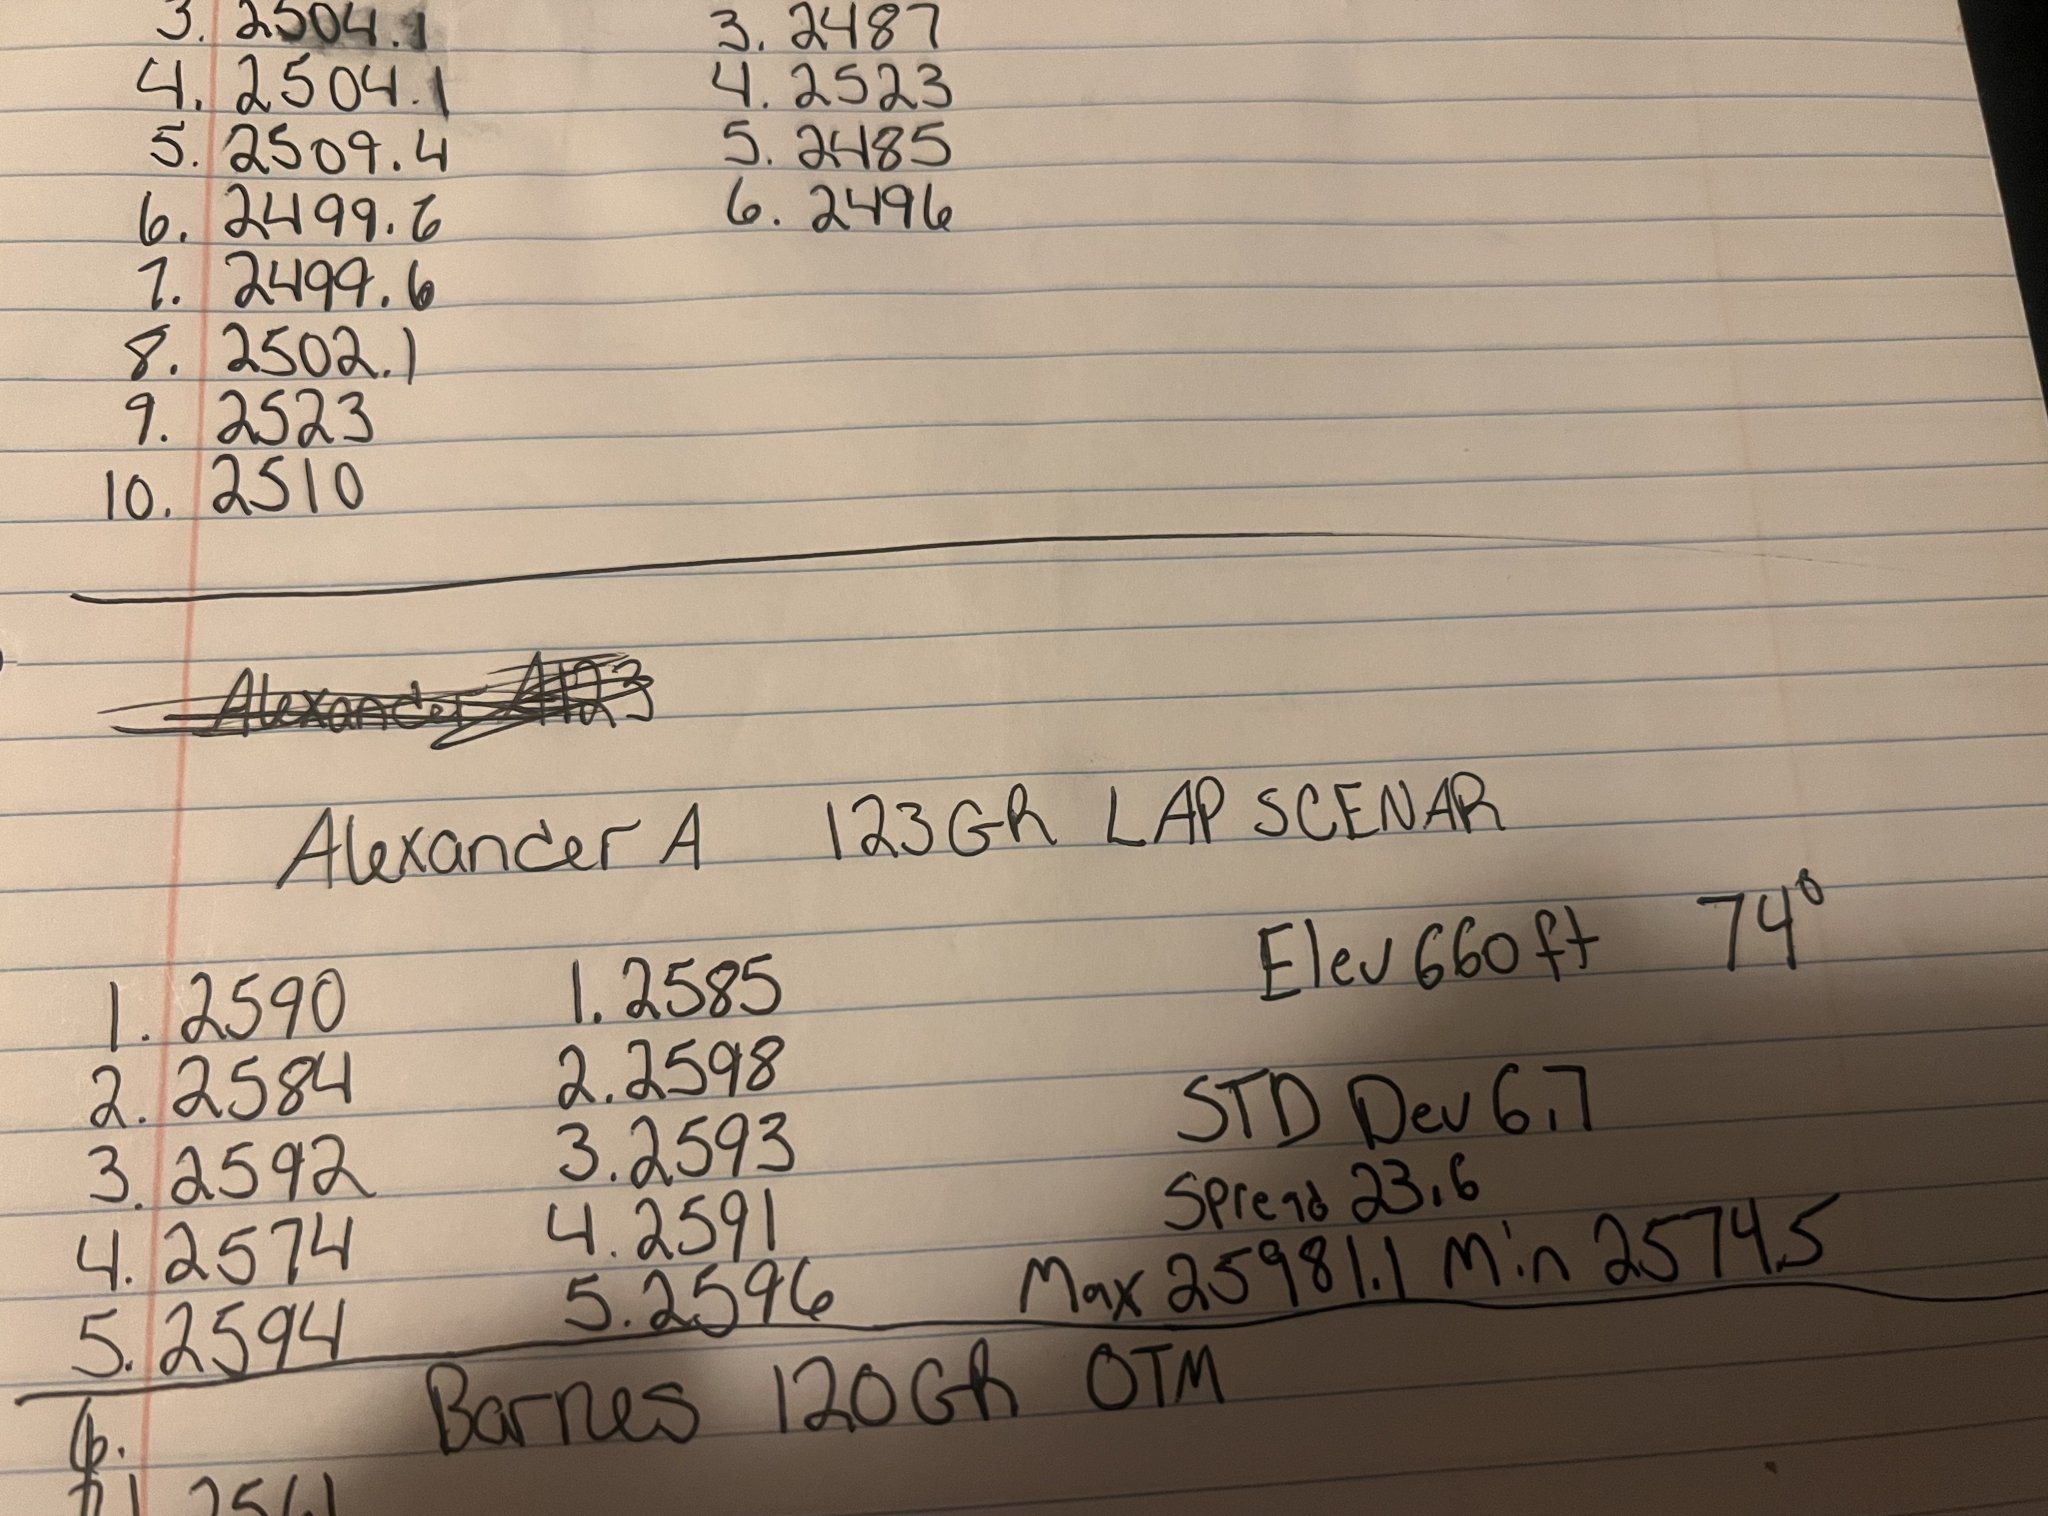 3. 2504.1 3. 2487
4. 2504.1 4. 2523
5. 2509.4 5. 2485
6. 2499.6 6. 2496
7. 2499.6
8. 2502.1
9. 2523
10. 2510
Alexander A123
Alexander A 123GR LAP SCENAR
Elev 660ft 74°
1. 2590 1. 2585
2. 2584 2. 2598
3. 2592 3. 2593
4. 2574 4. 2591
5. 2594 5. 2596
STD Dev 6.7
Spread 23.6
Max 25981.1 Min 2574.5
Barnes 120GR OTM
6.
1 2561